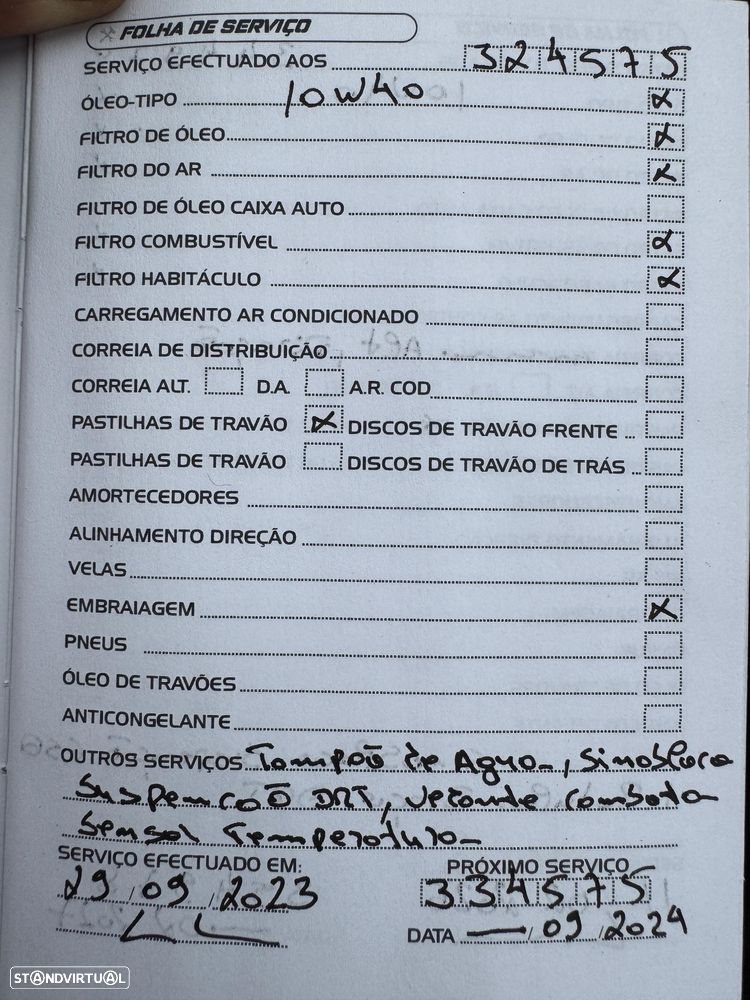 FOLHA DE SERVIÇO
SERVIÇO EFECTUADO AOS 324575
ÓLEO-TIPO 10W40 X
FILTRO DE ÓLEO X
FILTRO DO AR X
FILTRO DE ÓLEO CAIXA AUTO
FILTRO COMBUSTÍVEL X
FILTRO HABITÁCULO X
CARREGAMENTO AR CONDICIONADO
CORREIA DE DISTRIBUIÇÃO
CORREIA ALT. D.A. A.R. COD
PASTILHAS DE TRAVÃO X DISCOS DE TRAVÃO FRENTE
PASTILHAS DE TRAVÃO DISCOS DE TRAVÃO DE TRÁS
AMORTECEDORES
ALINHAMENTO DIREÇÃO
VELAS
EMBRAIAGEM X
PNEUS
ÓLEO DE TRAVÕES
ANTICONGELANTE
OUTROS SERVIÇOS Tampão de Agua, Sinobloco
Suspenção DRT, Vedante Cambota
Sensol Temperatura
SERVIÇO EFECTUADO EM: PRÓXIMO SERVIÇO
29/09/2023 334575
DATA —/09/2024
STANDVIRTUAL